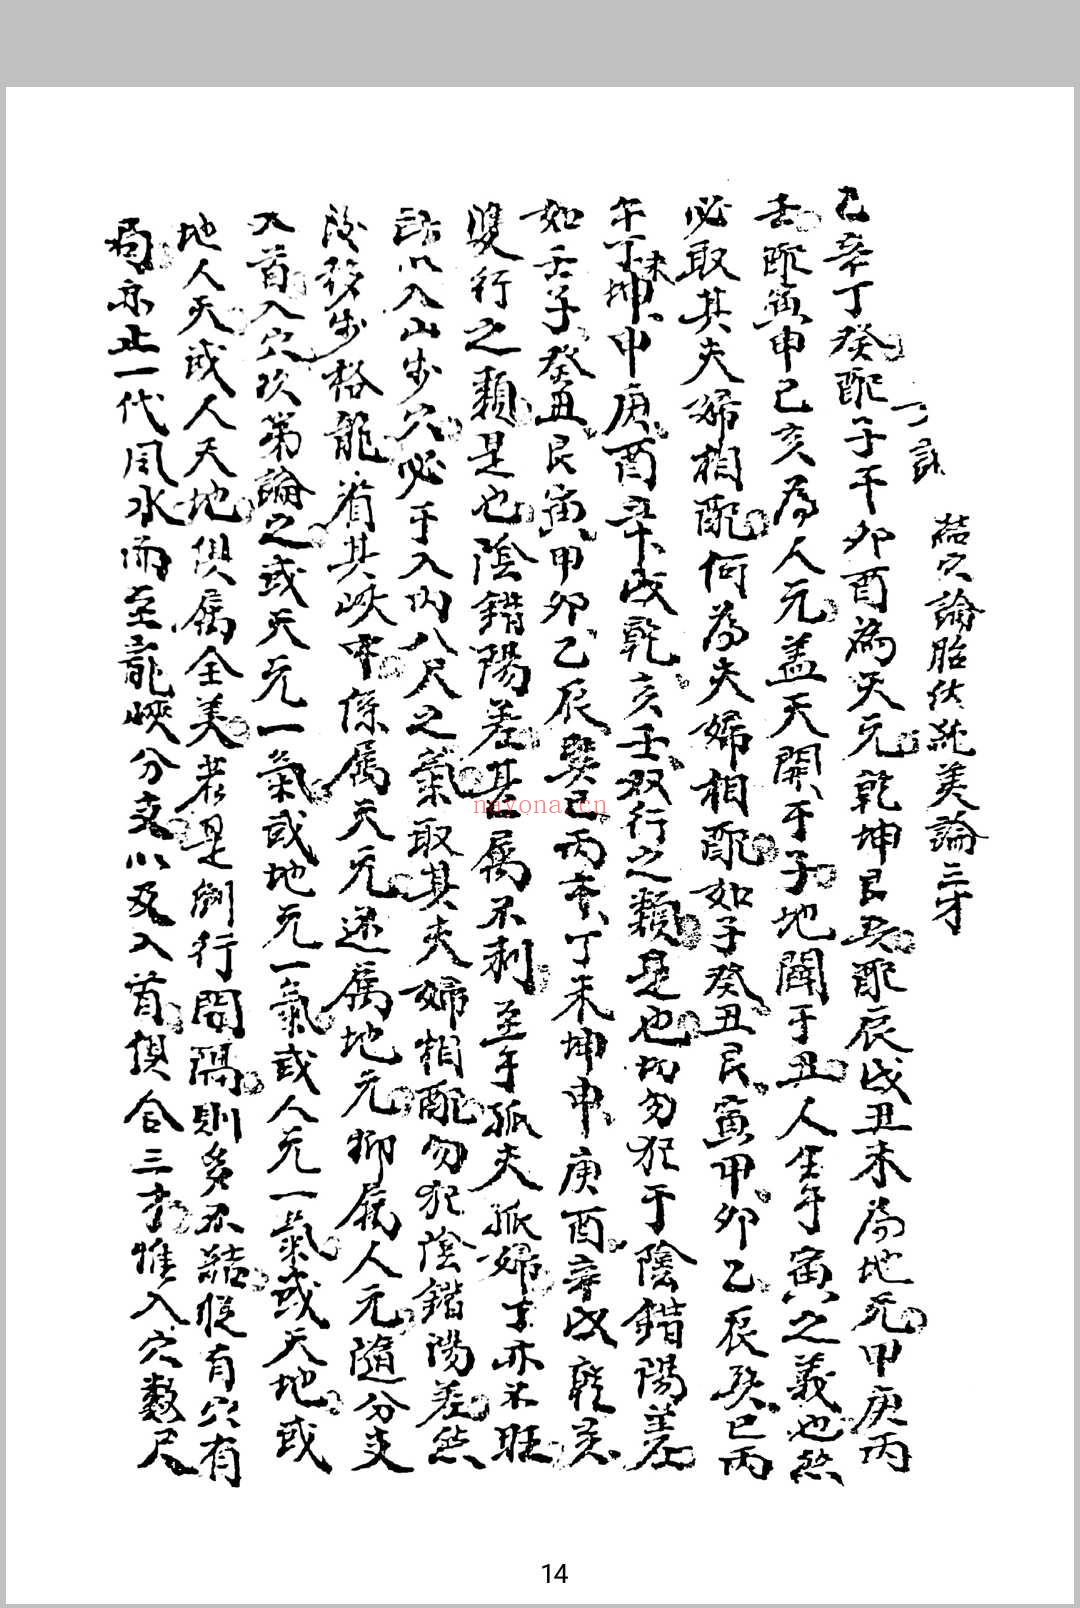 結穴論胎伏純美論三才
乙辛丁癸配子午卯酉為天元乾坤艮巽配辰戌丑未為地元甲庚丙
壬配寅申己亥為人元盖天開于子地闢于丑人生于寅之義也然
必取其夫婦相配何為夫婦相配如子癸丑艮寅甲卯乙辰巽巳丙
午丁未坤申庚酉辛戌乾亥壬双行之類是也切勿犯于陰錯陽差
如壬子癸丑艮寅甲卯乙辰巽巳丙午丁未坤申庚酉辛戌乾亥
雙行之類是也陰錯陽差甚属不利至于孤夫孤婦丁亦不旺
以入山步穴必于入內八尺之氣取其夫婦相配勿犯陰錯陽差然
後移步格龍省其峽中係属天元还属地元抑属人元隨分支
入首入穴次第論之或天元一氣或地元一氣或人元一氣或天地或
地人天或人天地俱属全美若是倒行間隔則多不結縱有穴有
局亦止一代風水而至龍峽分支以及入首俱合三才惟入穴數尺
nayona.cn
14